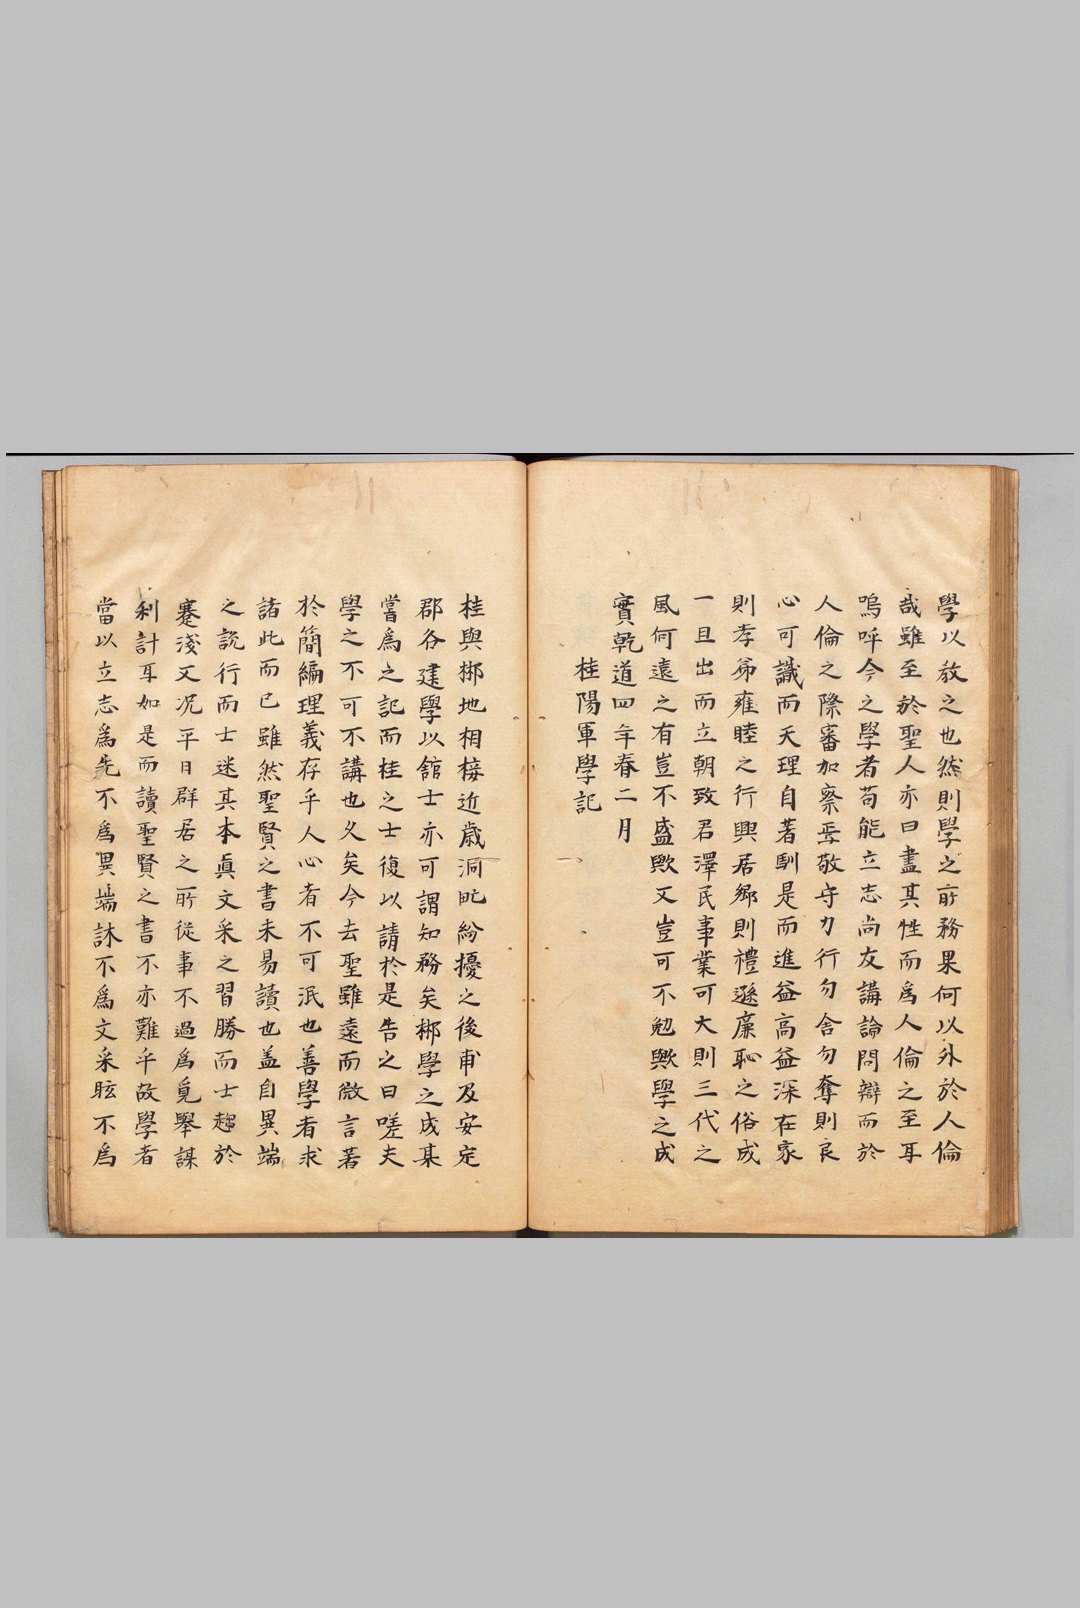 學以教之也然則學之所務果何以外於人倫
哉雖至於聖人亦曰盡其性而爲人倫之至耳
嗚呼今之學者苟能立志尚友講論問辯而於
人倫之際審加察焉敬守力行勿舍勿奪則良
心可識而天理自著馴是而進益高益深在家
則孝弟雍睦之行興居鄉則禮遜廉恥之俗成
一旦出而立朝致君澤民事業可大則三代之
風何遠之有豈不盛歟又豈可不勉歟學之成
實乾道四年春二月
桂陽軍學記
桂與郴地相接近歲洞甿紛擾之後甫及安定
郡各建學以館士亦可謂知務矣郴學之成某
嘗爲之記而桂之士復以請於是告之曰嗟夫
學之不可不講也久矣今去聖雖遠而微言著
於簡編理義存乎人心者不可泯也善學者求
諸此而已雖然聖賢之書未易讀也盖自異端
之說行而士迷其本眞文采之習勝而士趨於
蹇淺又况平日群居之所從事不過爲覓舉謀
利計耳如是而讀聖賢之書不亦難乎故學者
當以立志爲先不爲異端訹不爲文采眩不爲